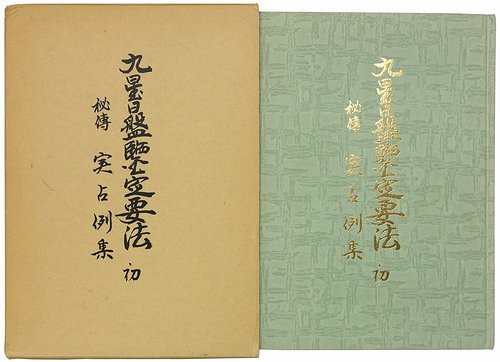 九星日盤鑑定要法 初
秘傳 実占例集
九星日盤鑑定要法 初
秘傳 実占例集